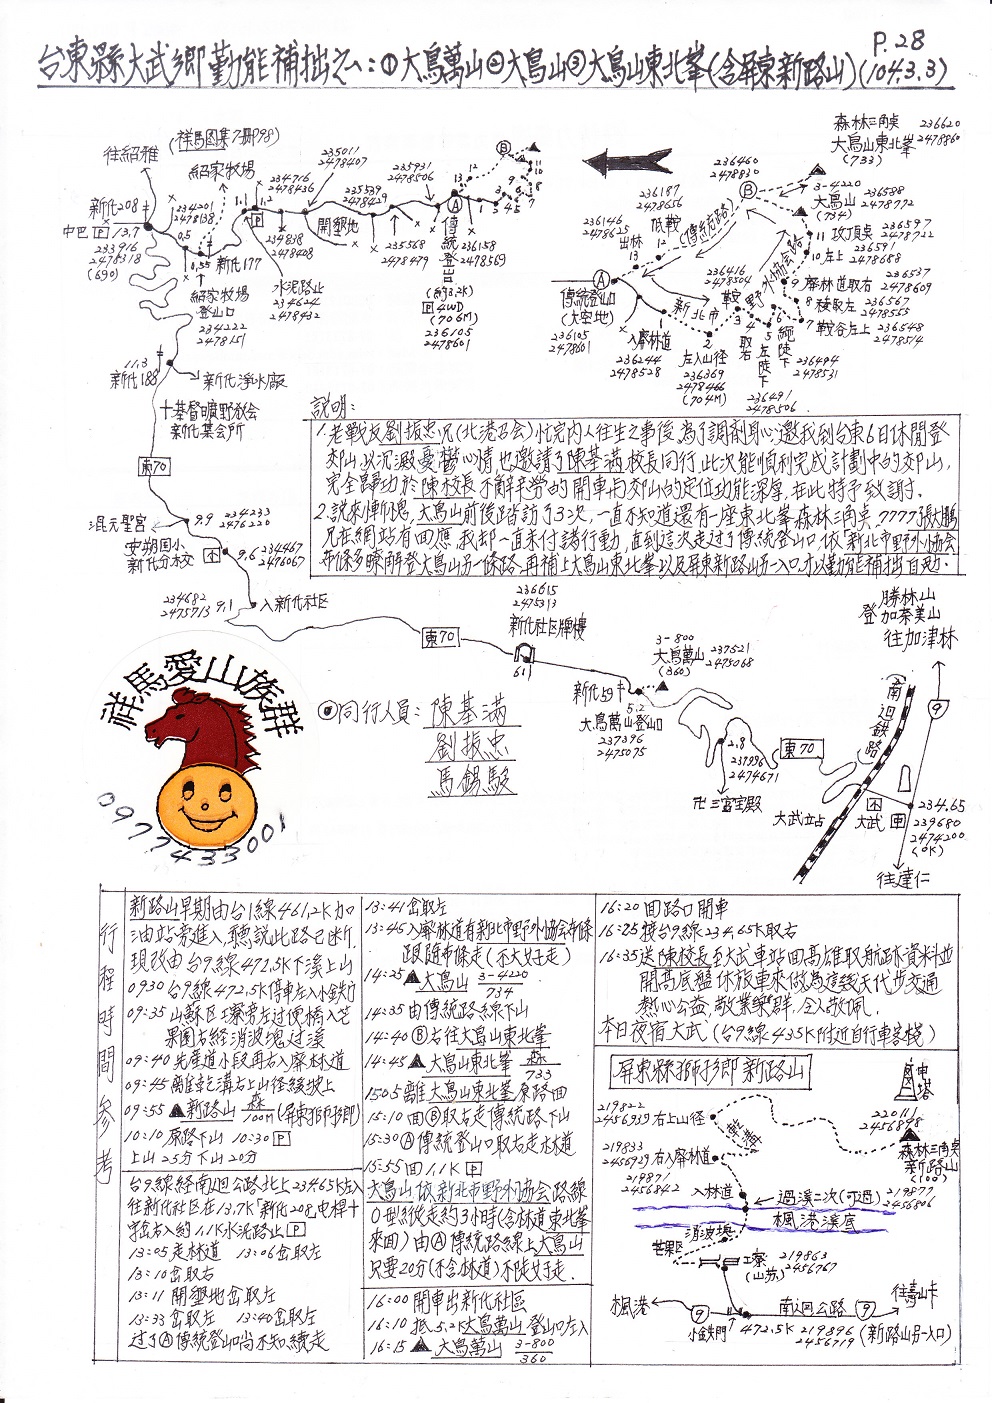 P.28
台東縣大武鄉勤能補拙之八:①大鳥萬山②大鳥山③大鳥山東北峯(含屏東新路山)(104.3.3)
往紹雅
(祥馬图集7冊P98)
紹家牧場
新化208
中巴 P 13.7
233916
2478318
(690)
234201
2478138
0.5
0.55
新化177
紹家牧場
登山口
234222
2478151
1.1
1.2
P
234716
2478436
水泥路止
234624
2478432
234838
2478408
235011
2478407
開墾地
235539
2478429
235568
2478479
235931
2478506
傳統登山口
(約3.2K)
P 4WD
(706M)
236105
2478601
236158
2478569
森林三角點
大鳥山東北峯
(733)
236620
2478860
236460
2478830
B
3-4220
大鳥山
(734)
236588
2478772
236187
2478656
低鞍
(傳統底路)
236146
2478625
出林
13
12
11 攻頂點
236597
2478722
10 左上
236591
2478688
9 寮林道取右
236537
2478609
8 稜取左
236567
2478555
7 鞍谷左上
236548
2478514
野外協會路
236416
2478504
鞍
新北市
A
傳統登山口
(大空地)
236105
2478601
入寮林道
236244
2478528
2
左入山徑
236369
2478466
(704M)
3
4
取右
5
左陡下
6
繩陡下
236491
2478506
236494
2478531
11.3
新化188
新化淨水廠
十基督曠野教会
新化集会所
東70
混元聖宮
9.9
234233
2476220
安朔国小
新化分校
9.6
234467
2476067
234682
2475713
9.1
入新化社区
說明:
1.老戰友劉振忠兄(北港召会)忙完內人往生之事後,為了調劑身心邀我到台東6日休閒登
郊山,以沉澱憂鬱心情,也邀請了陳基滿校長同行,此次能順利完成計劃中的郊山,
完全歸功於陳校長不辭辛勞的開車与郊山的定位功能深厚,在此特予致謝.
2.說來慚愧,大鳥山前後踏訪了3次,一直不知道還有一座東北峯森林三角點,7777張大鵬
兄在網站有回應,我却一直未付諸行動,直到這次走过了傳統登山口,依「新北市野外協会
布條多瞭解登大鳥山另一條路,再補上大鳥山東北峯以及屏東新路山另一入口,才以勤能補拙自勉.
東70
236615
2475313
新化社區牌樓
6.1
3-800
大鳥萬山
(360)
237521
2475068
新化59
5.2
大鳥萬山登山口
237396
2475075
2.8
2474671
卍三宝宮殿
東70
勝林山
登加奈美山
往加津林
9
南迴鉄路
大武站
大武
234.65
239680
2474200
(OK)
往達仁
祥馬愛山族群
0977433001
◎同行人員: 陳基滿
劉振忠
馬錫駿
行程時間參考
新路山早期由台1線461.2K加
油站旁進入,聽說此路已断.
現改由台9線472.5K下溪上山
0930 台9線472.5K停車左入小鉄門
09:35 山蘇区工寮旁左过便橋入芒
果園右經消波塊过溪
09:40 先產道小段再右入寮林道
09:45 離乾溝右上山徑緩坡上
09:55 ▲新路山 森/100m (屏東獅子鄉)
10:10 原路下山 10:30 P
上山25分下山20分
台9線経南迴公路北上234.65K左入
往新化社区在13.7K「新化208電桿十
字岔右入約1.1K水泥路止 P
13:05 走林道 13:06岔取左
13:10 岔取右
13:11 開墾地岔取左
13:33 岔取左 13:40岔取左
过了A傳統登山口尚不知續走
13:41岔取左
13:45入寮林道有新北市野外協会布條
跟随布條走(不太好走)
14:25 ▲大鳥山 3-4220/734
14:35由傳統路線下山
14:40 B右往大鳥山東北峯
14:45 ▲大鳥山東北峯 森/733
1505離大鳥山東北峯原路回
15:10 回B取右走傳統路下山
15:30 A傳統登山口取右走林道
15:55回1.1K P
大鳥山依新北市野外協会路線
O型縱走約3小時(含林道東北峯
來回)由A傳統路線上大鳥山
只要20分(不含林道)不陡好走.
16:00 開車出新化社區
16:10 抵5.2K大鳥萬山登山口左入
16:15 ▲大鳥萬山 3-800/360
16:20 回路口開車
16:25 接台9線234.65K取右
16:35 送陳校長至大武車站回高雄取航跡資料並
開高底盤休旅車來做為這幾天代步交通
熱心公益,敬業樂群,令人敬佩.
本日夜宿大武(台9線435K附近自行車客棧)
屏東縣獅子鄉新路山
219822
2456939 右上山徑
乾溝
219833
2456929 右入寮林道
219871
2456842 入林道
過溪二次(可過)
219877
2456806
楓港溪底
消波塊
芒果区
工寮
(山苏)
219863
2456767
電塔
220111
2456898
森林三角點
新路山
(100)
楓港
9
南迴公路 9
往壽山卡
小鉄門
472.5K
219896
2456719 (新路山另一入口)